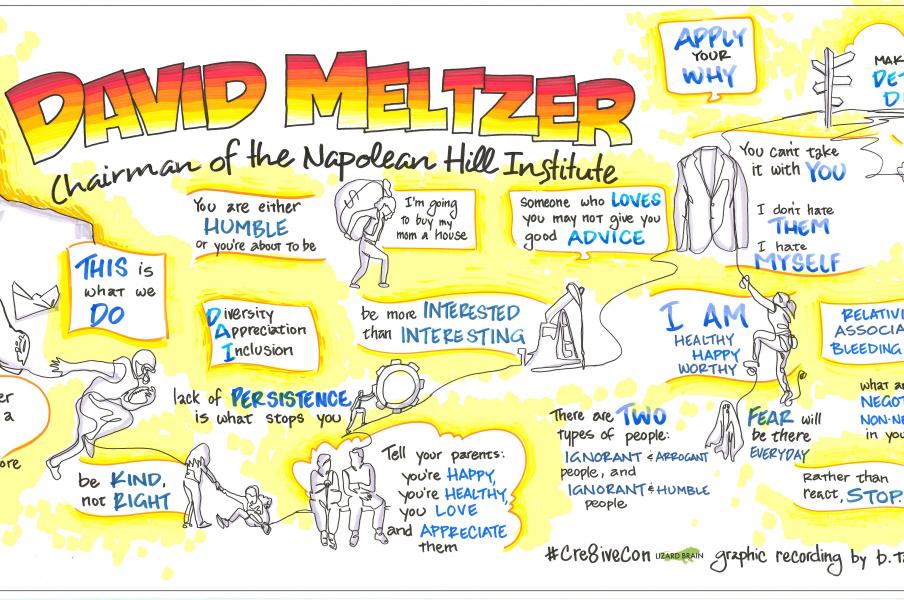 DAVID MELTZER
Chairman of the Napolean Hill Institute
APPLY
YOUR
WHY
You can't take
it with YOU
I don't hate
THEM
I hate
MYSELF
You are either
HUMBLE
or you're about to be
I'm going
to buy my
mom a house
someone who LOVES
you may not give you
good ADVICE
THIS is
what we
DO
Diversity
Appreciation
Inclusion
be more INTERESTED
than INTERESTING
I AM
HEALTHY
HAPPY
WORTHY
BLEEDING
lack of PERSISTENCE
is what stops you
There are TWO
types of people:
IGNORANT & ARROGANT
people, and
IGNORANT & HUMBLE
people
FEAR will
be there
EVERYDAY
a
in
be KIND,
not RIGHT
Tell your parents:
you're HAPPY,
you're HEALTHY,
you LOVE
and APPRECIATE
them
Rather than
react, STOP
#Cre8iveCon LIZARD BRAIN graphic recording by b.